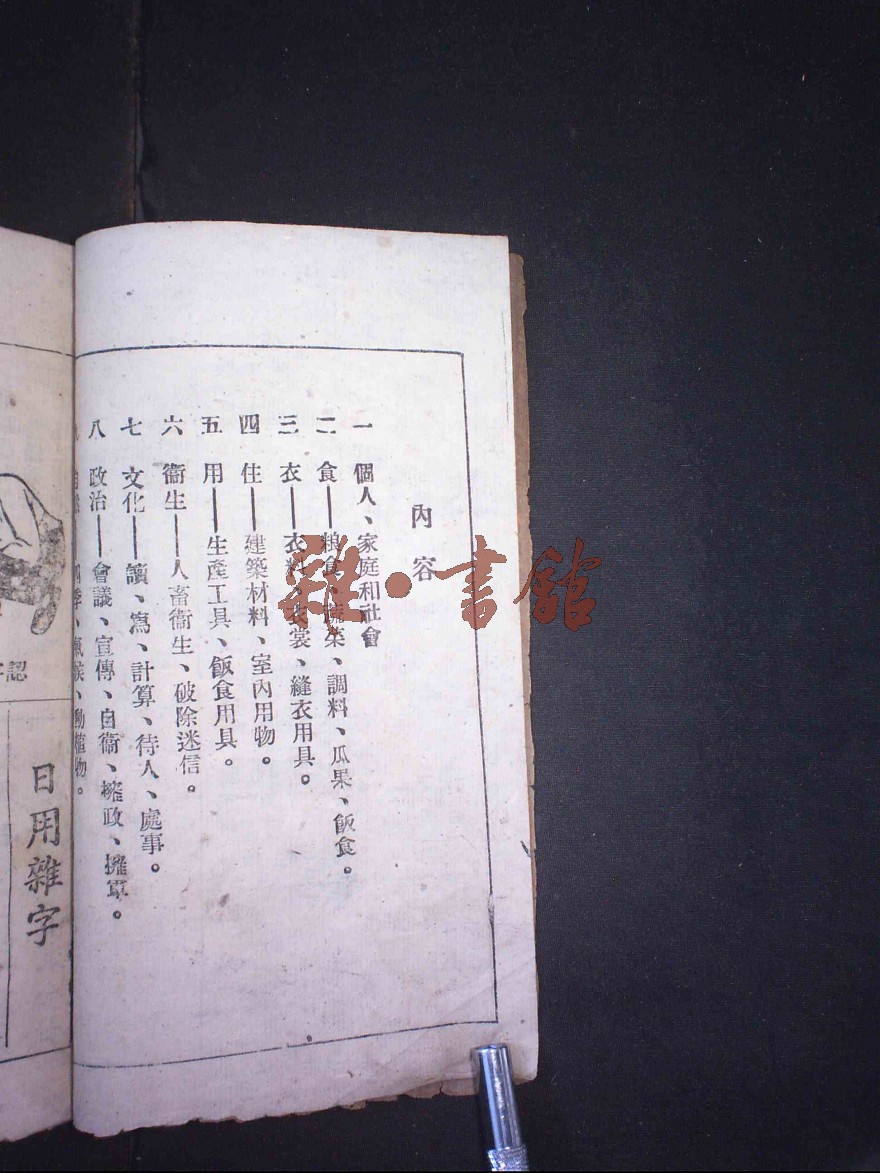 內容
一 個人、家庭和社會
二 食——粮食、蔬菜、調料、瓜果、飯食。
三 衣——衣料、衣裳、縫衣用具。
四 住——建築材料、室內用物。
五 用——生產工具、飯食用具。
六 衞生——人畜衞生、破除迷信。
七 文化——讀、寫、計算、待人、處事。
八 政治——會議、宣傳、自衞、擁政、擁軍。
四季、氣候、動植物。
認
日用雜字
雜·書館